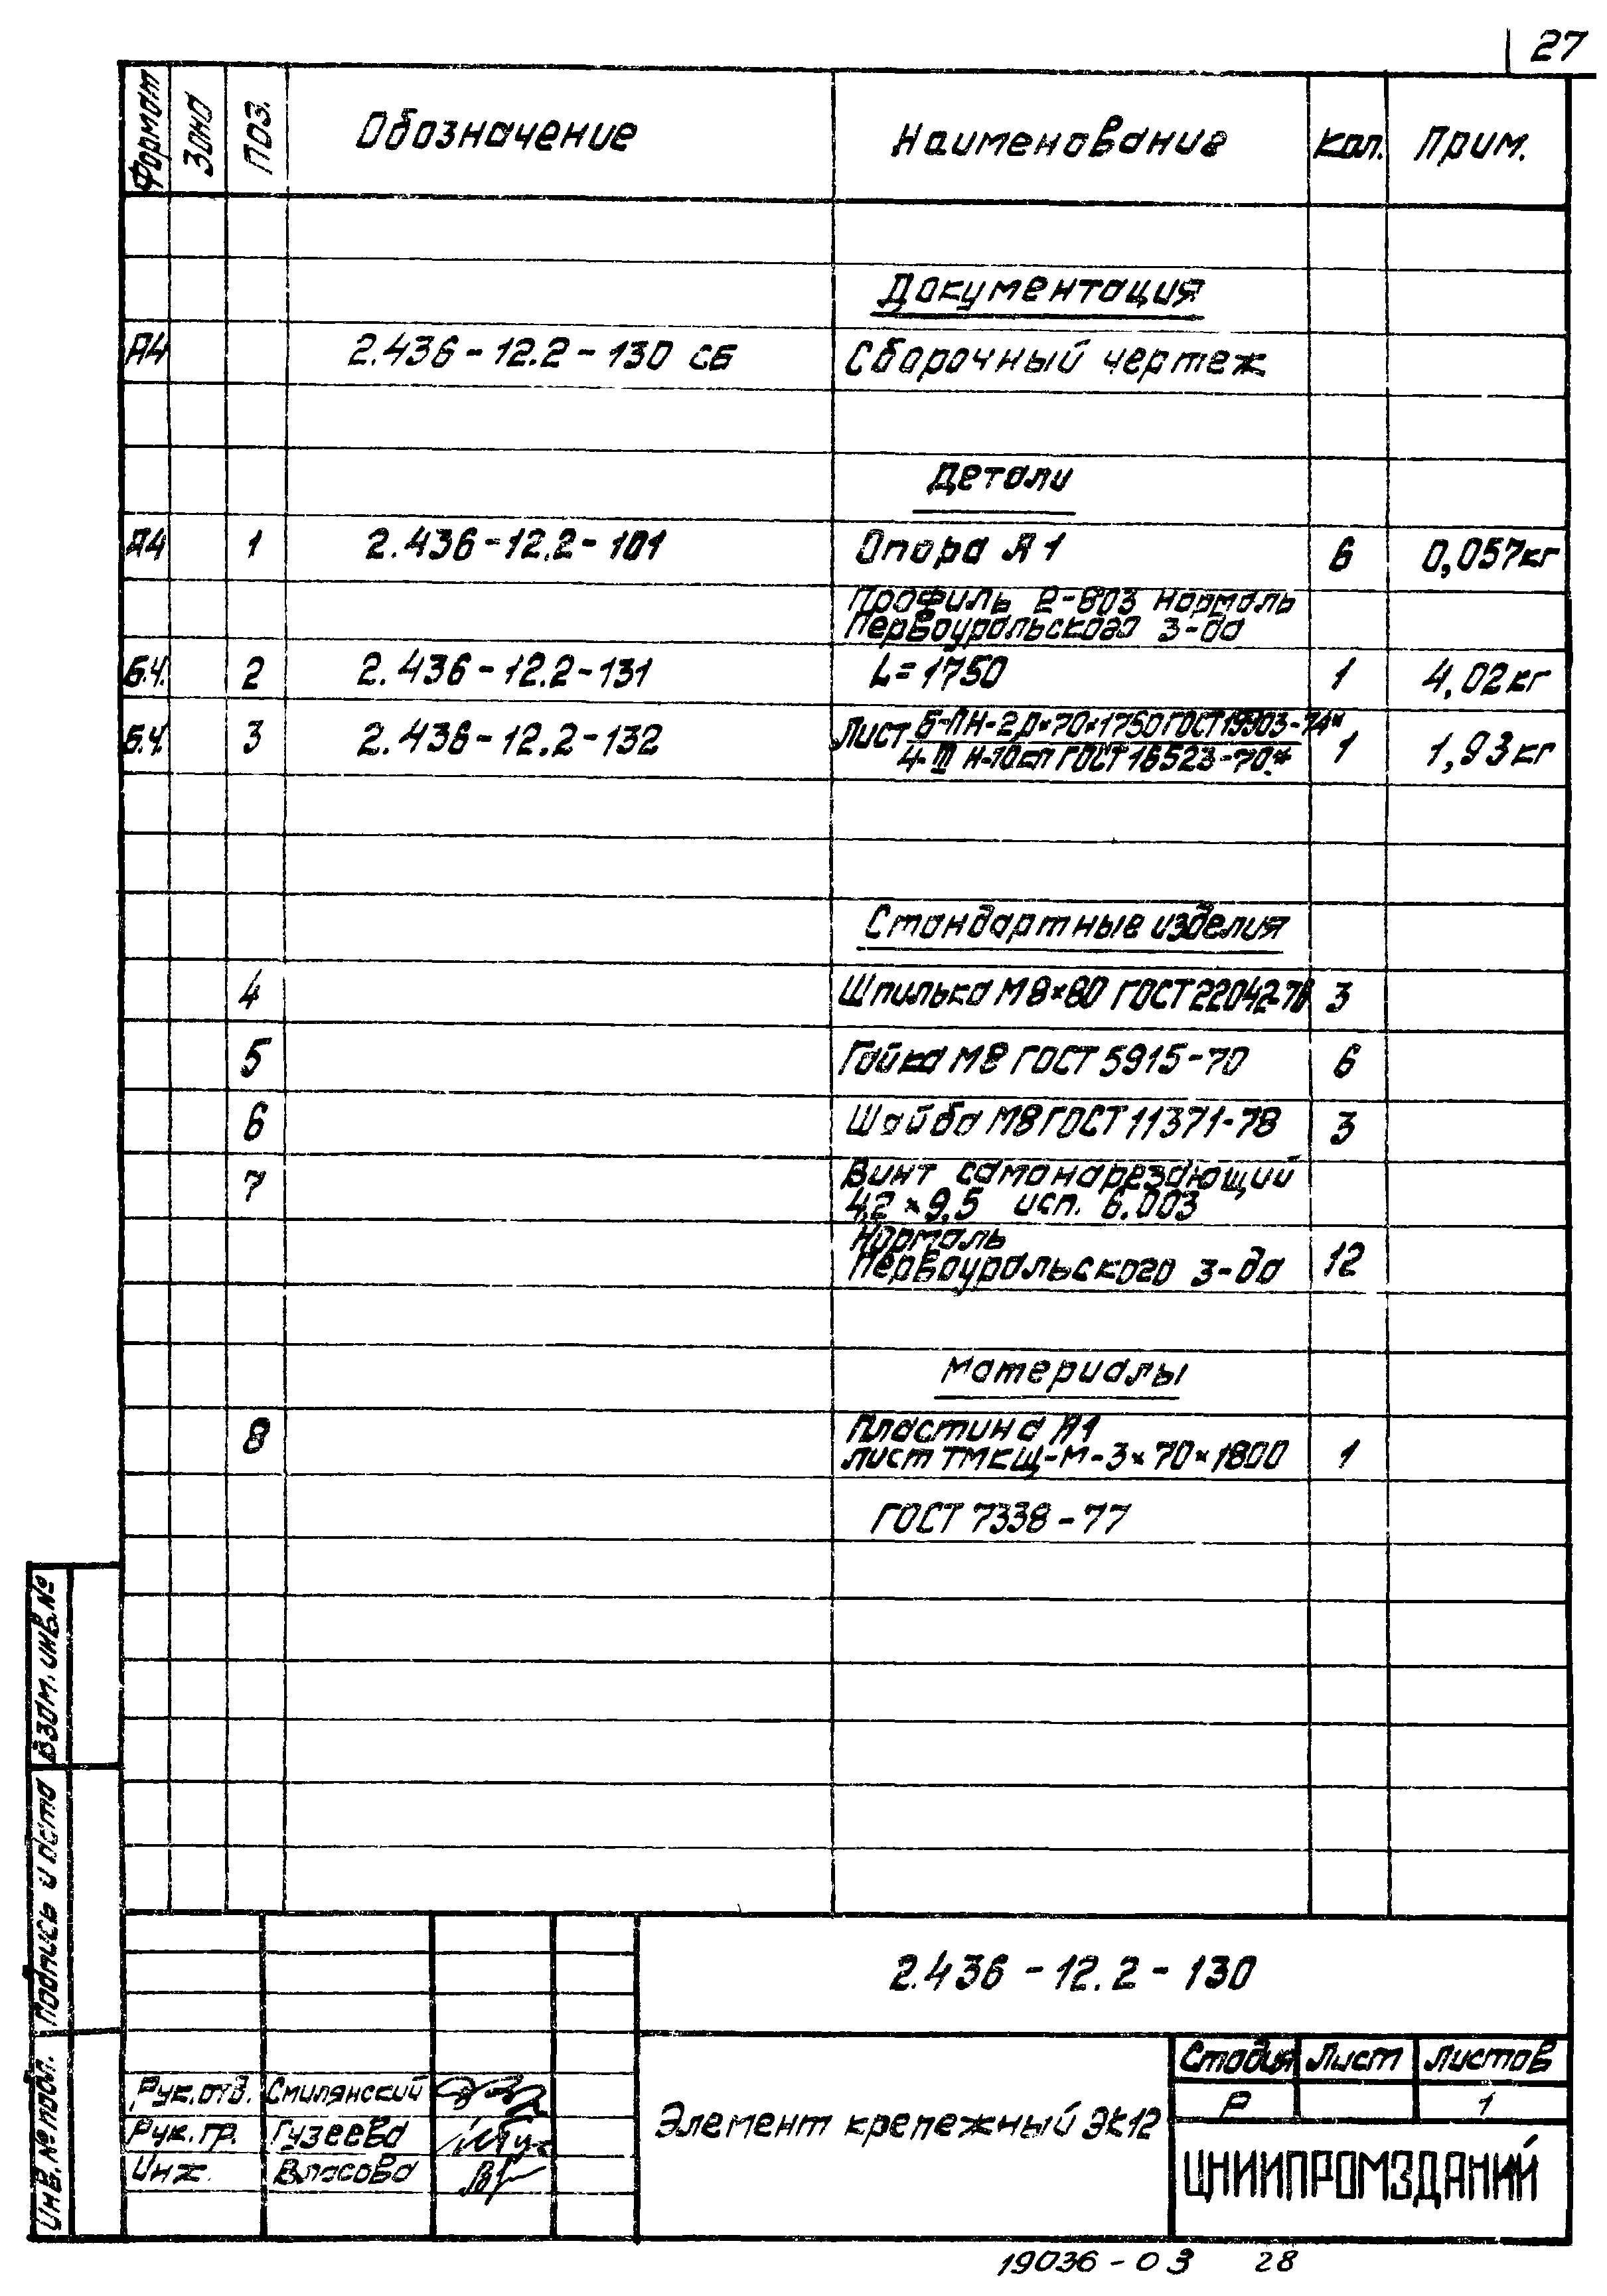 27
Формат Зона Поз. Обозначение Наименование Кол. Прим.
Документация
А4 2.436-12.2-130 СБ Сборочный чертеж
Детали
А4 1 2.436-12.2-101 Опора А1 6 0,057кг
Профиль Е-803 нормаль
Первоуральского з-да
Б.Ч. 2 2.436-12.2-131 L=1750 1 4,02кг
Б.Ч. 3 2.436-12.2-132 Лист Б-ПН-2,0×70×1750 ГОСТ 19903-74* 1 1,93кг
4-III Н-10кп ГОСТ 16523-70*
Стандартные изделия
4 Шпилька М8×80 ГОСТ 22042-76 3
5 Гайка М8 ГОСТ 5915-70 6
6 Шайба М8 ГОСТ 11371-78 3
7 Винт самонарезающий
4,2×9,5 исп. 6.003
Нормаль
Первоуральского з-да 12
Материалы
8 Пластина А1
лист ТМКЩ-М-3×70×1800 1
ГОСТ 7338-77
Взам. инв. №
Подпись и дата
Инв. № подл.
2.436-12.2-130
Рук. отв. Смилянский
Рук. гр. Гузеева
Инж. Власова
Элемент крепежный ЭК12
Стадия Лист Листов
Р 1
ЦНИИПРОМЗДАНИЙ
19036-03 28